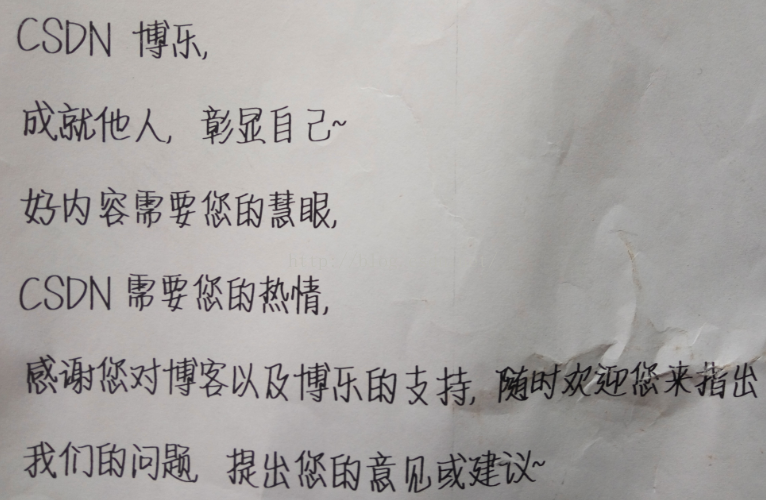 CSDN 博乐,
成就他人, 彰显自己~
好内容需要您的慧眼,
CSDN 需要您的热情,
感谢您对博客以及博乐的支持, 随时欢迎您来指出
我们的问题 提出您的意见或建议~